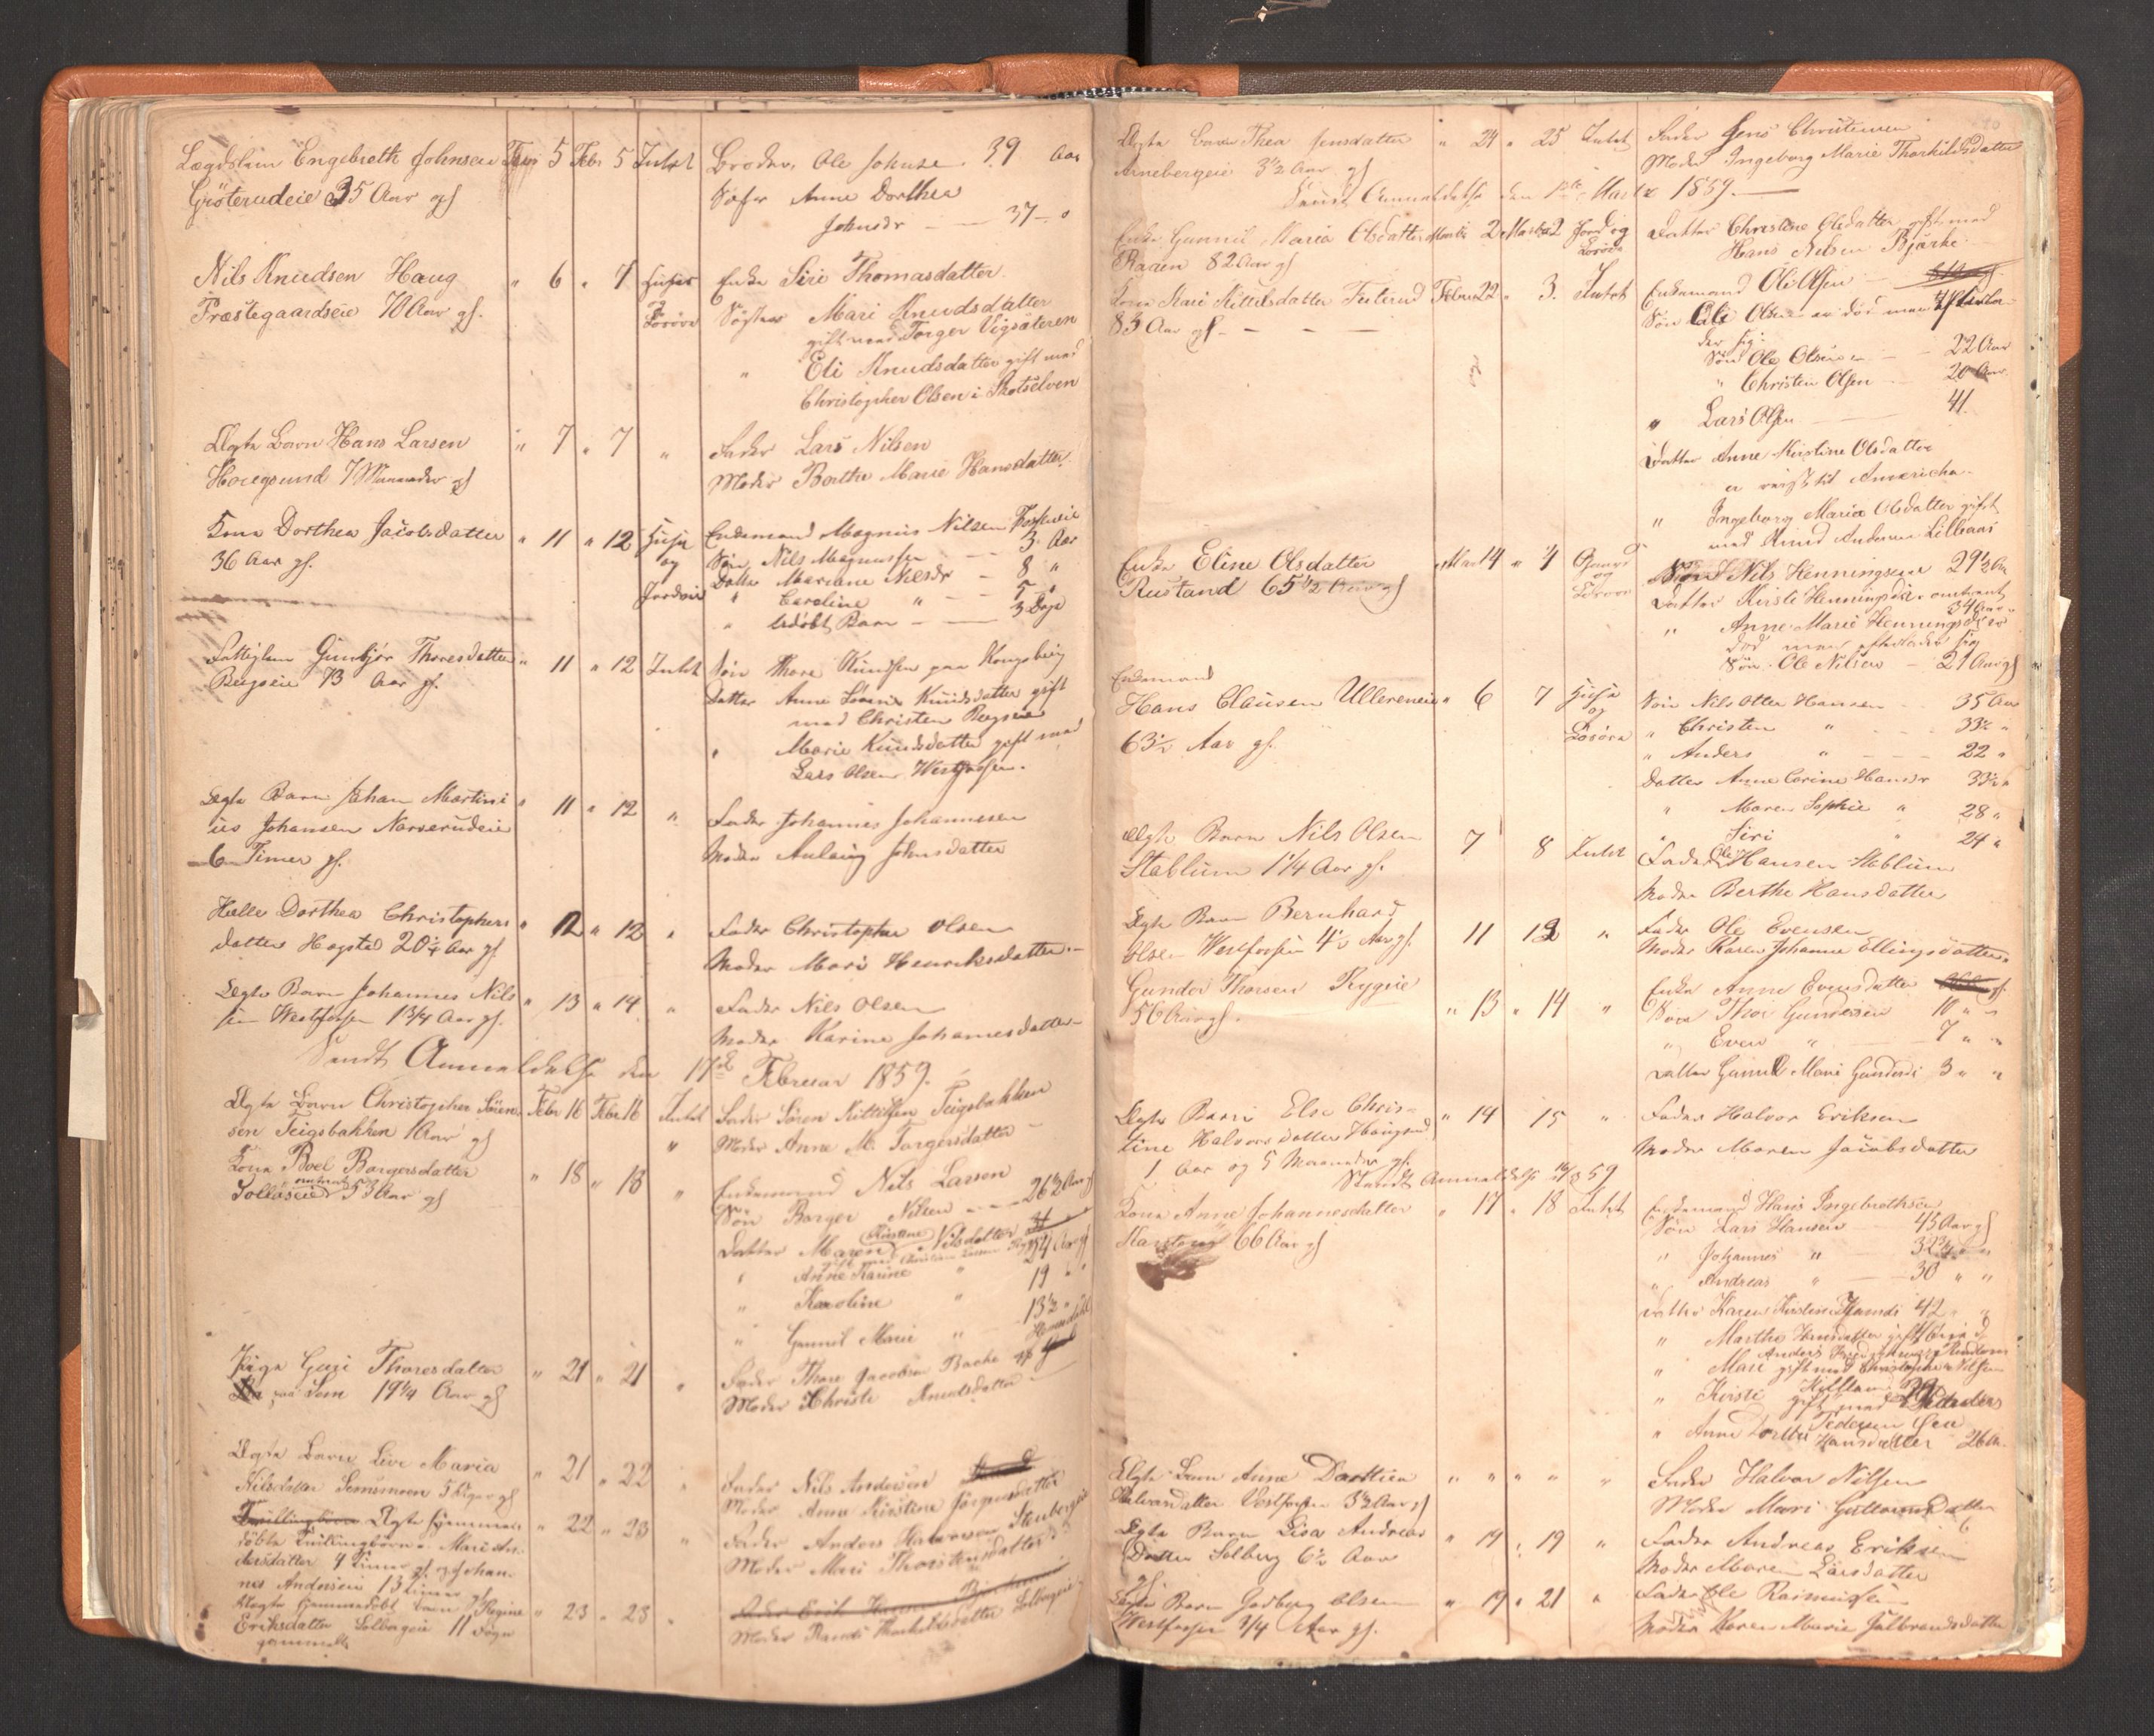 Lægdslem Engebreth Johnsen Febr 5 Febr 5 Intet Broder Ole Johnsen 39 Aar
Grösterudeie 35 Aar gl Anne Dorthea
Johnsdr — 37 — "
Nils Knudsen Haug " 6 " 7 Huus Enke Siri Thomasdatter
Præstegaardseie 70 Aar gl. og Løsøre Søster Mari Knudsdatter
gift med Torger Vigsäteren
" Eli Knudsdatter gift med
Christopher Olsen i Skotselven
Ægte Barn Hans Larsen " 7 " 7 " Fader Lars Nilsen
Hougsund 7 Maaneder gl Moder Berthe Marie Hansdatter
Kone Dorthea Jacobsdatter " 11 " 12 Huse Enkemand Magnus Nilsen
36 Aar gl. og Søn Nils Magnussen — 3 Aar
Jordvei Datter Mariane Nilsdr — 8 "
" Caroline " — 5 "
" Udøbt Barn — 3 Dage
Fattiglem Gunbjør Thoresdatter " 11 " 12 Intet Søn Thore Knudsen paa Kongsberg
Bergseie 73 Aar gl. Datter Anne Knudsdatter gift
med Christen Bergseie
" Marie Knudsdatter gift med
Lars Olsen Westfossen.
Ægte Barn Johan Martini " 11 " 12 " Fader Johannes Johannesen
us Johansen Narverudeie Moder Aulaug Johnsdatter
6 Timer gl.
Helle Dorthea Christophers " 12 " 12 " Fader Christopher Olsen
datter Hogstad 20¼ Aar gl Moder Mari Henriksdatter
Ægte Barn Johannes Nils " 13 " 14 " Fader Nils Olsen
sen Westfossen 1¾ Aar gl. Moder Karine Johannesdatter
Sendt Anmeldelse den 17de Februar 1859.
Ægte Barn Christopher Søren Febr 16 Febr 16 Intet Fader Søren Kittilsen Teigsbakken
sen Teigsbakken 1 Aar gl " Moder Anne M. Torgersdatter
Kone Boel Borgersdatter " 18 " 18 " Enkemand Nils Larsen
omtrent 53 Aar gl Søn Borger Nilsen — 26½ Aar gl
Datter Maren Kirstine Nilsdatter
" Anne Karine " 19 " "
" Karoline " 13½ "
" Gunnil Marie "
Pige Guri Thoresdatter " 21 " 21 " Fader Thore Jacobsen Bache
paa Lem 19¼ Aar gl Moder Christi Knudsdatter
Ægte Barn Live Maria " 21 " 22 " Fader Nils Andersen
Nilsdatter Semsmoen 5 Dage gl Moder Anne Kirstine Jørgensdatter
Ægte hjemme " 22 " 23 " Fader Anders Halvorsen Stenbergeie
døbte Tvillingbørn Mari An- Moder Mari Thorstensdatter
dersdatter 4 Timer gl. og Johan-
nes Andersen 13 Timer gl.
Uægte hjemmedøbt Barn Regine " 23 " 23 " Fader Erik Hansen
Eriksdatter Solbergeie 11 Dage Moder Randi Thorkildsdatter Solbergeie
gammelt
Ægte Barn Thea Jensdatter " 24 " 25 Intet Fader Jens Christensen
Arnebergeie 3½ Aar gl Moder Ingeborg Marie Thorkildsdatter
Sendt Anmeldelse den 1ste Marts 1859.
Enke Gunnil Maria Olsdatter Marts 2 Marts 2 Jord og Datter Christine Olsdatter gift med
Raaen 82 Aar gl Løsøre Hans Nilsen Bjærke
Kone Kari Kittilsdatter Februar 22 " 3. Intet Enkemand Ole Olsen
83 Aar gl — — — Søn Ole Olsen er død men efterla-
der sig:
Søn Ole Olsen — 22 Aar
" Christen Olsen — 20 Aar
" Lars Olsen — 41
Datter Anne Kirstine Olsdatter
er reist til Amerika
" Ingeborg Maria Olsdatter gift
med Knud Andersen
Enke Eline Olsdatter Mar 14 " 4 Gaard Søn Nils Henningsen 29½ Aar
Rustand 65½ Aar gl og Løsøre Datter Kirsti Henningsdr. omtrent
34 Aar
" Anne Marie Henningsdr er
død men efterlader sig
Søn Ole Nilsen — 21 Aar gl
Enkemand
Hans Clausen Ullereneie " 6 7 Huse Søn Nils Otter Hansen — 35 Aar
63½ Aar gl. og Løsøre " Christen " — 33½ "
" Anders " — 22 "
Datter Anne Corine Hansdr 33½ "
" Maren Sophie " 28 "
" Siri " 24 "
Ægte Barn Nils Olsen 7 8 Intet Fader Ole Hansen Stablum
Stablum 1¼ Aar gl. Moder Berthe Hansdatter
Ægte Barn Bernhard 11 12 " Fader Ole Evensen
Olsen Westfossen 4½ Aar gl. Moder Karen Johanne Ellingsdatter
Gunder Thorsen Rygeie " 13 " 14 " Enke Anne Evensdatter
56 Aar gl. Søn Thor Gundersen 10 " "
" Even " — 7 " "
Datter Gunnil Mari Gundersdr 3 " "
Ægte Barn Else Chris- " 14 15 " Fader Halvor Eriksen
tine Halvorsdatter Hougsund Moder Maren Jacobsdatter
1 Aar og 5 Maaneder gl.
Sendt Anmeldelse 16/3 59
Kone Anne Johannesdatter " 17 " 18 Intet Enkemand Hans Ingebrethsen
66 Aar gl Søn Lars Hansen — 45 Aar gl
" Johannes " 32¾ " "
" Andreas " — 30 " "
Datter Karen Kirstine Hansdr 42 " "
" Marthe Hansdatter gift med
" Mari gift med Christopher Nilsen
" Kirsti gift med
Pedersen
" Anne Dorthe Hansdatter 26 Aar
Ægte Barn Anne Dorthea " " " " " Fader Halvor Nilsen
Halvorsdatter Vestfossen 3½ Aar gl Moder Mari Gulbrandsdatter
Ægte Barn Lisa Andreas " 19 " 19 " Fader Andreas Eriksen
Datter Solberg 6½ Aar gl Moder Maren Larsdatter
Ægte Barn Godberg Olsen " 19 " 21 " Fader Ole Rasmussen
Westfossen ¾ Aar gl. Moder Karen Marie Gulbrandsdatter